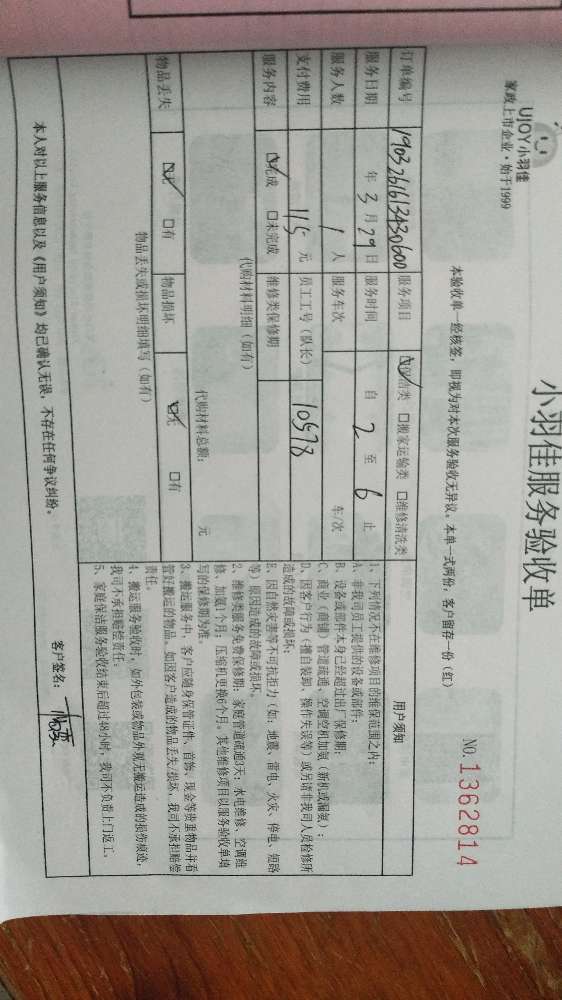 UJOY小羽佳
家政上市企业·始于1999
小羽佳服务验收单
本验收单一经核签，即视为对本次服务验收无异议。本单一式两份，客户留存一份（红）
NO.1362814
订单编号 190326161343060 服务项目 ☑保洁类 □搬家运输类 □维修清洗类
服务日期 年 3 月 29 日 服务时间 自 2 至 6 止
服务人数 1 人 服务车次 车/次
支付费用 115 元 员工工号（队长） 10578
服务内容 ☑完成 □未完成 维修类保修期
代购材料明细（如有）
代购材料总额： 元
物品丢失 ☑无 □有 物品损坏 ☑无 □有
物品丢失或损坏明细填写（如有）
用户须知
1、下列情况不在维修项目的维保范围之内：
A、非我司员工提供的设备或部件；
B、设备或部件本身已经超过出厂保修期；
C、商业（商铺）管道疏通、空调整机加氨（新机或漏氨）；
D、因客户行为（擅自装卸、操作失误等）或另请非我司人员检修所
造成的故障或损坏；
E、因自然灾害等不可抗拒力（如：地震、雷电、火灾、停电、短路
等）原因造成的故障或损坏。
2、维修类服务免费保修期：家庭管道疏通3天；水电维修、空调维
修、加氨1个月；压缩机更换6个月。其他维修项目以服务验收单填
写的保修期为准。
3、搬运服务中，客户应随身保管证件、首饰、现金等贵重物品并看
管好搬运的物品，如因客户造成的物品丢失/损坏，我司不承担赔偿
责任。
4、搬运服务验收时，如外包装或物品外观无搬运造成的损伤痕迹，
我司不承担赔偿责任。
5、家庭保洁服务验收结束后超过48小时，我司不负责上门返工。
本人对以上服务信息以及《用户须知》均已确认无误，不存在任何争议纠纷。
客户签名：